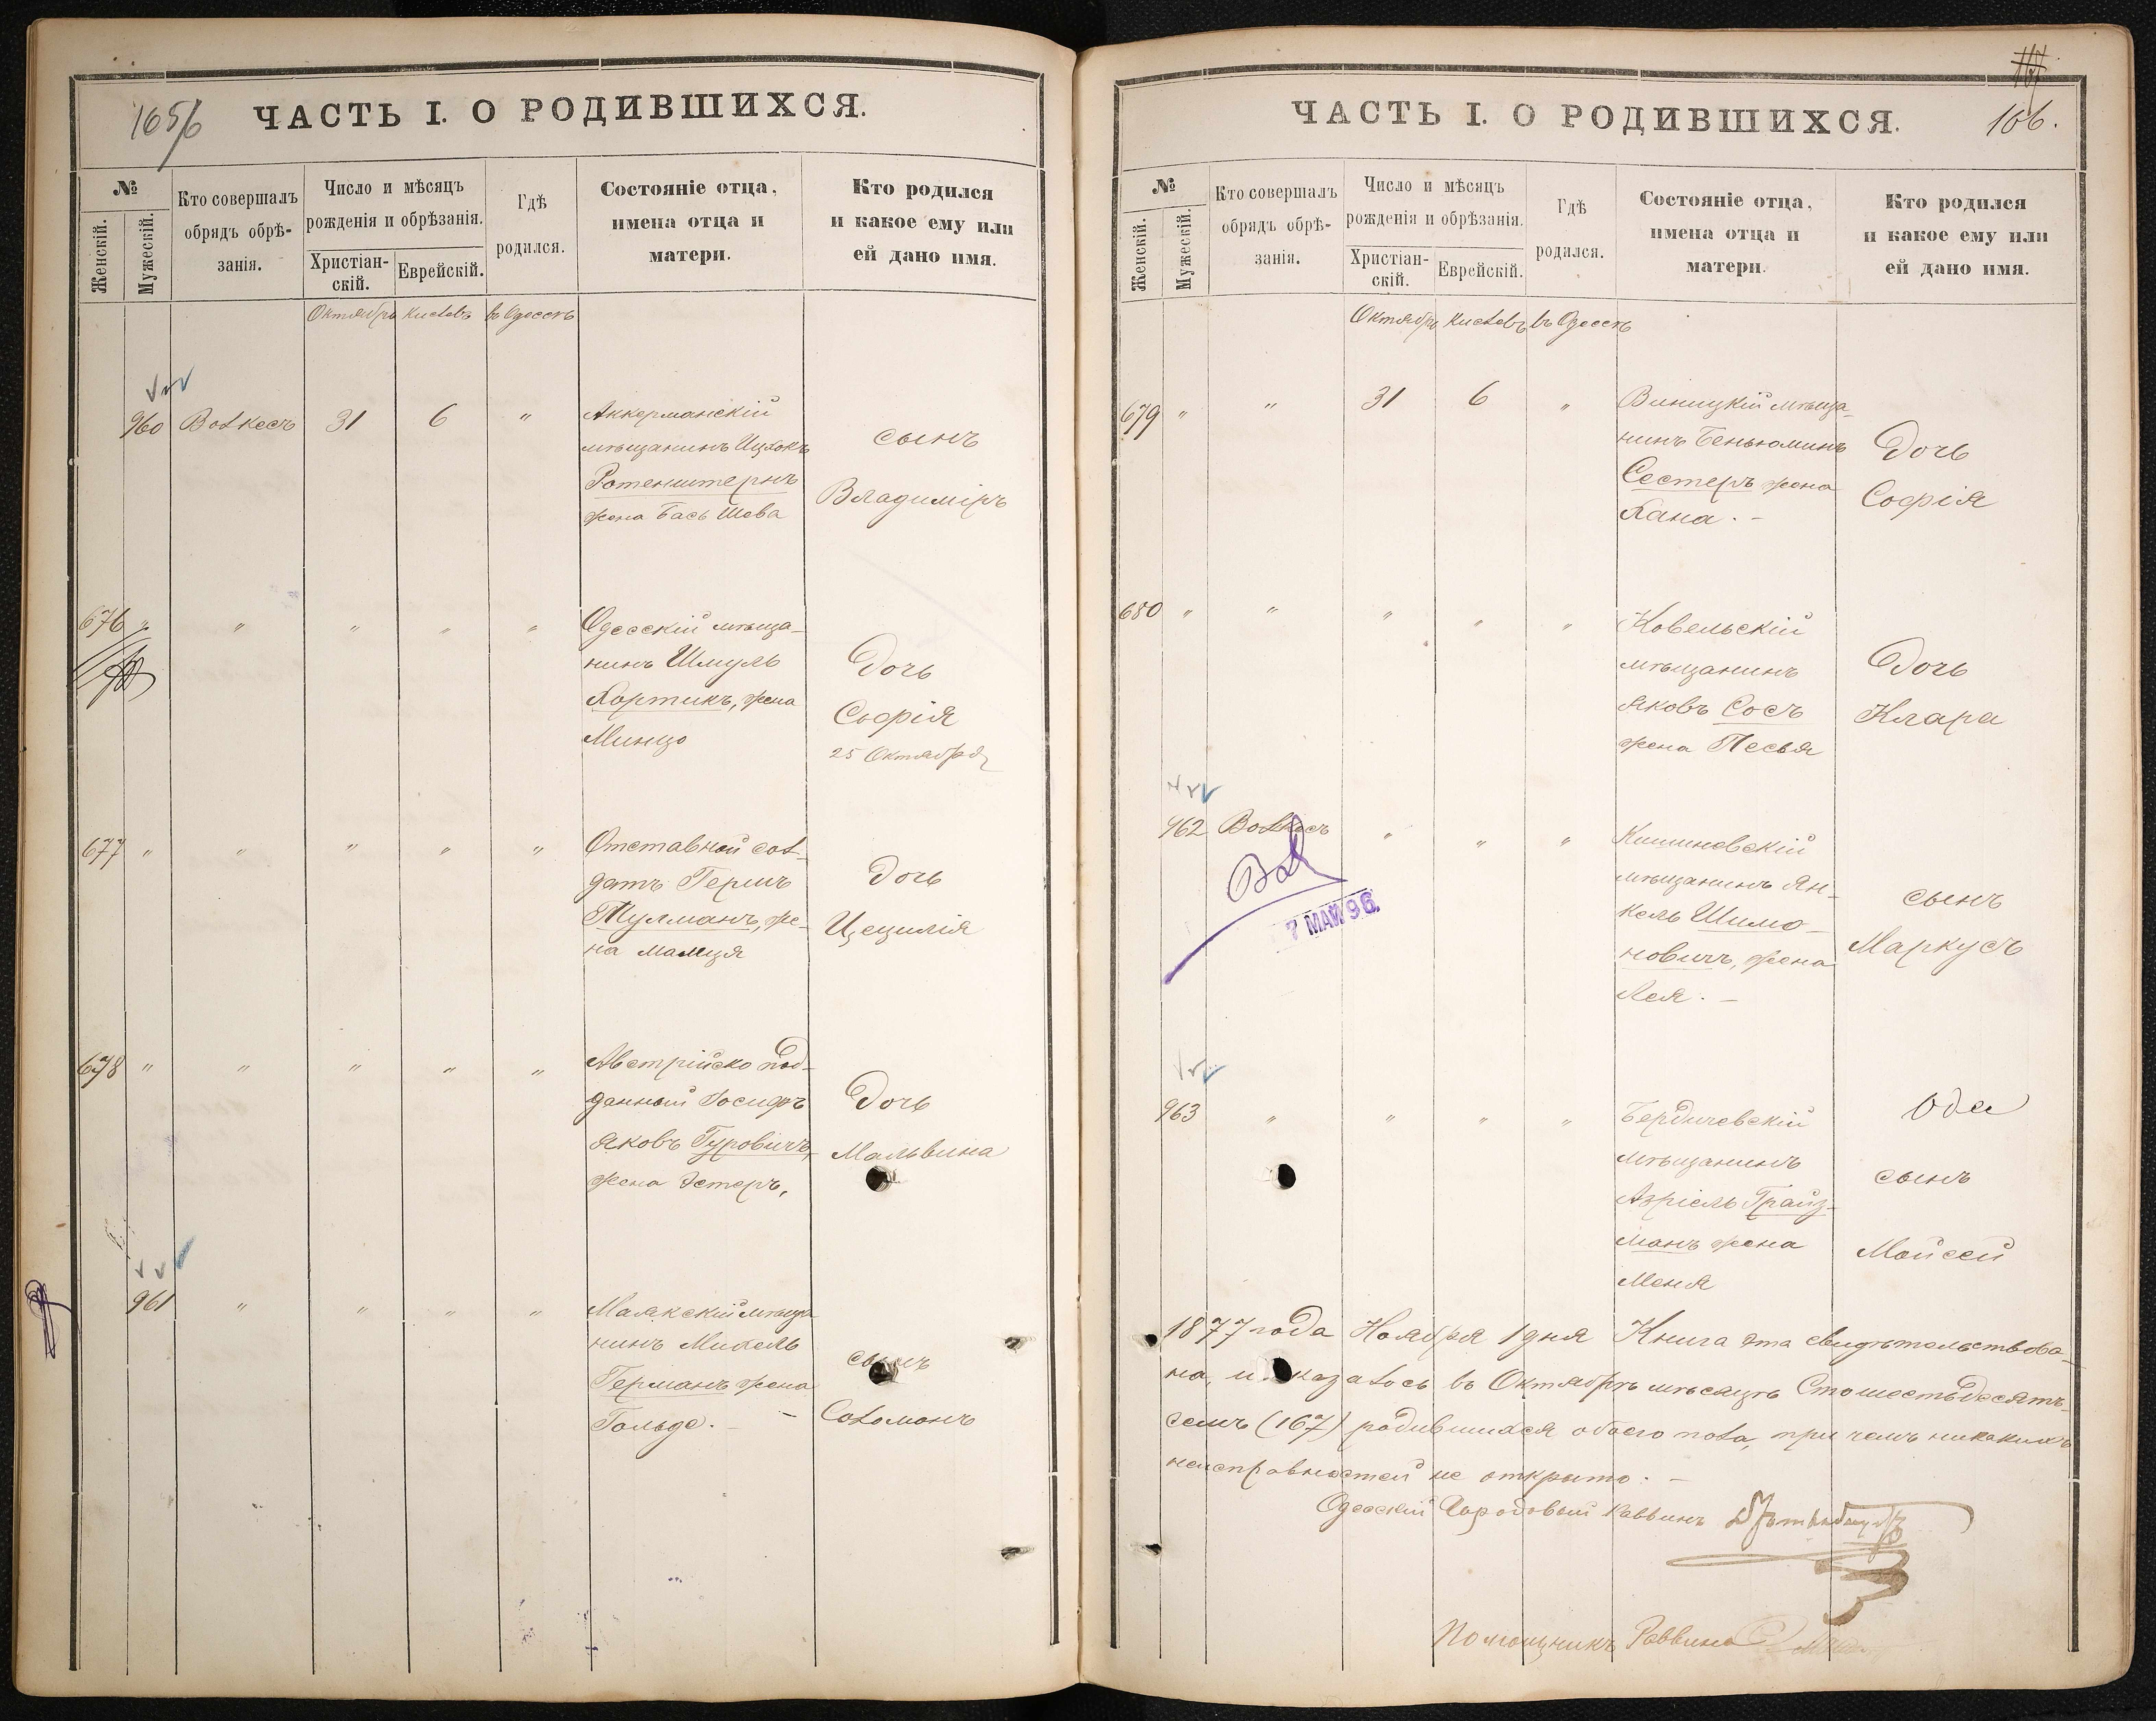 165/6
ЧАСТЬ I. О РОДИВШИХСЯ.
№
Женскій.
Мужескій.
Кто совершалъ
обрядъ обрѣ-
занія.
Число и мѣсяцъ
рожденія и обрѣзанія.
Христіан-
скій.
Еврейскій.
Гдѣ
родился.
Состояніе отца,
имена отца и
матери.
Кто родился
и какое ему или
ей дано имя.
Октябрь Кислевъ въ Одессѣ
960 Волкесъ 31 6 " Аккерманскій
мѣщанинъ Ицхокъ
Ротенштернъ
жена Бась Шева
сынъ
Владиміръ
676 " " " " " Одесскій мѣща-
нинъ Шмуль
Хортикъ, жена
Минцо
Дочь
Софія
25 Октября
677 " " " " " Отставной сол-
датъ Гершъ
Тулманъ, же-
на Малця
Дочь
Цецилія
678 " " " " " Австрійско под-
данный Іосифъ
Яковъ Гуровичъ,
жена Эстеръ,
Дочь
Мальвина
961 " " " " Маякскій мѣща
нинъ Михель
Германъ жена
Гольда. -
сынъ
Соломонъ
106.
ЧАСТЬ I. О РОДИВШИХСЯ.
№
Женскій.
Мужескій.
Кто совершалъ
обрядъ обрѣ-
занія.
Число и мѣсяцъ
рожденія и обрѣзанія.
Христіан-
скій.
Еврейскій.
Гдѣ
родился.
Состояніе отца,
имена отца и
матери.
Кто родился
и какое ему или
ей дано имя.
Октябрь Кислевъ въ Одессѣ
679 " " 31 6 " Виницкій мѣща-
нинъ Беньюминъ
Сестеръ жена
Хана. -
Дочь
Софія
680 " " " " " Ковельскій
мѣщанинъ
Яковъ Сосъ
жена Песья
Дочь
Клара
962 Волкесъ " " " Кишиневскій
мѣщанинъ Ян-
кель Шимо-
новичъ, жена
Лея. -
сынъ
Маркусъ
7 МАЙ 96.
963 " " " " Бердичевскій
мѣщанинъ
Азріель Грайз-
манъ жена
Меня
сынъ
Мойсей
1877 года Ноября 1 дня Книга эта свидѣтельствова-
на, и оказалось въ Октябрѣ мѣсяцѣ Стошестьдесятъ-
семь (167) родившихся обоего пола, при чемъ никакихъ
неисправностей не открыто. -
Одесскій Городовой Раввинъ
Помощникъ Раввина